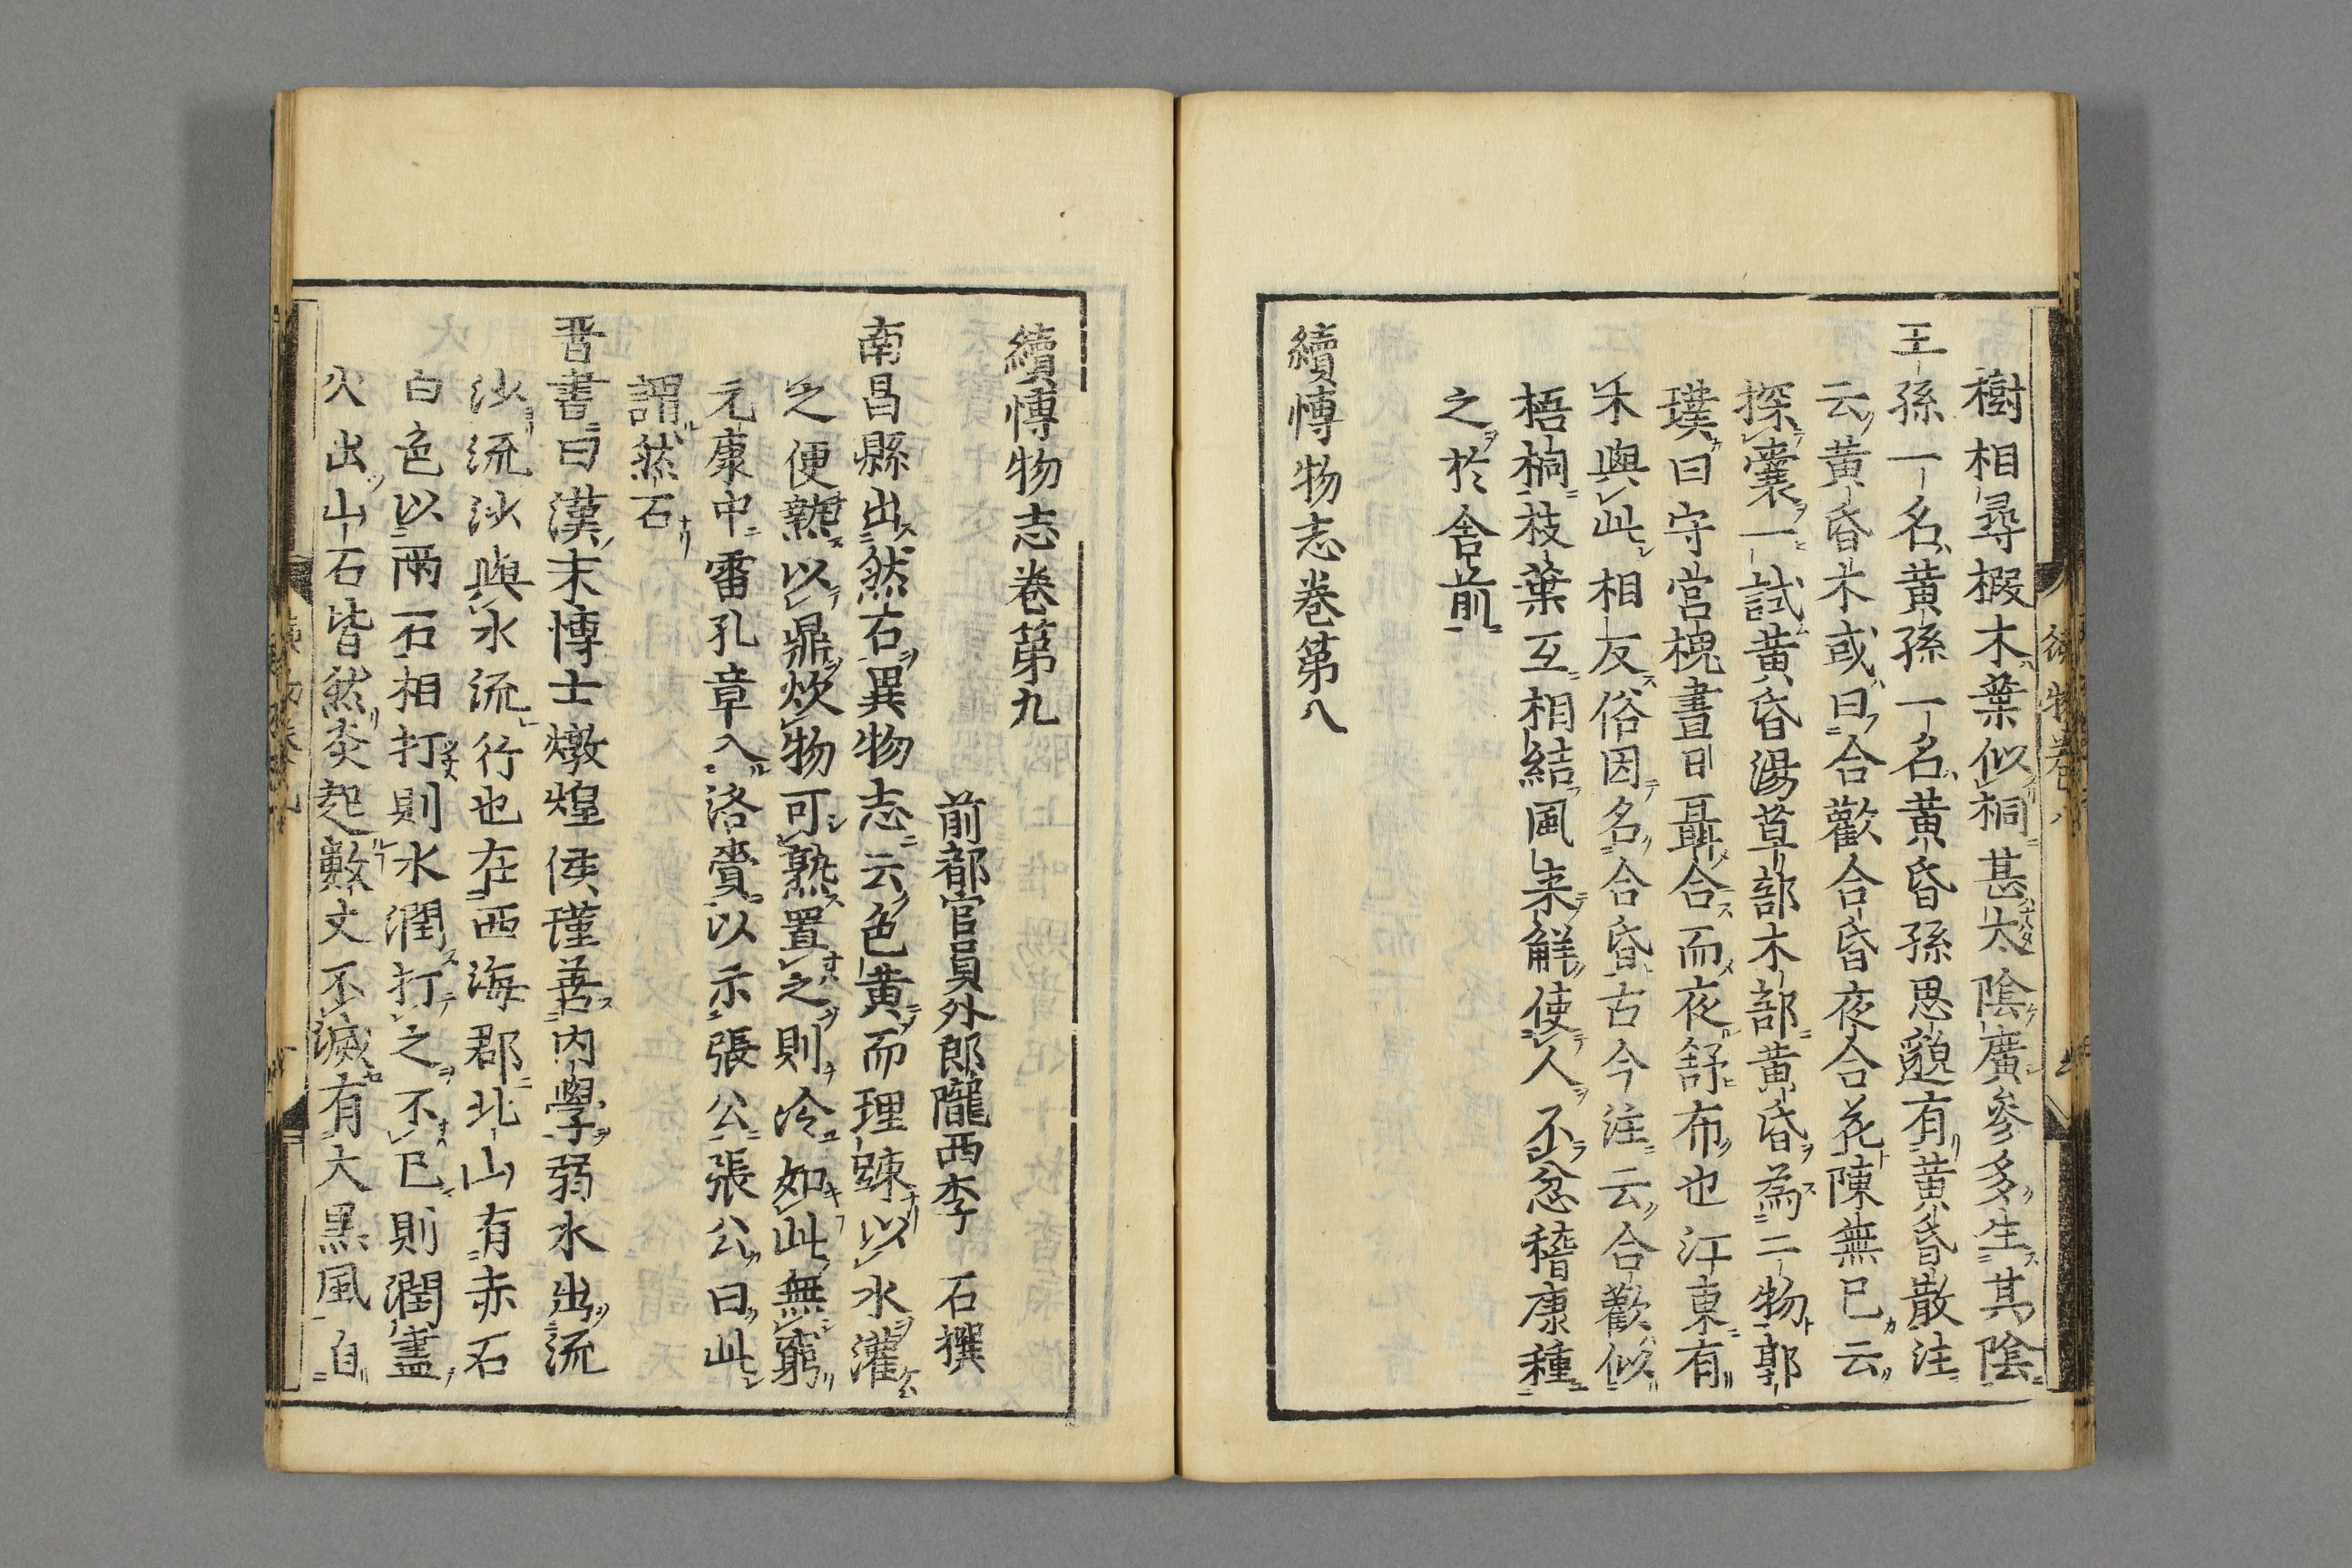 樹相尋椵木葉似桐甚大陰廣參多生其陰
王孫一名黃孫一名黃昏孫思邈有黃昏散注
云黃昏木或曰合歡合昏夜合花陳無已云
探囊一試黃昏湯草部木部黃昏為二物郭
璞曰守宮槐晝日聶合而夜舒布也江東有
木與此相反俗因名合昏古今注云合歡似
梧桐枝葉互相結風來觧使人不忿稽康種
之於舍前
續博物志卷第八
續博物志卷第九
前都官員外郎隴西李 石撰
南昌縣出然石異物志云色黃而理踈以水灌
之便熱以鼎炊物可熟置之則冷如此無窮
元康中雷孔章入洛賷以示張公張公曰此
謂然石
晋書曰漢末博士燉煌侯瑾善內學弱水出流
沙流沙與水流行也在西海郡北山有赤石
白色以兩石相打則水潤打之不已則潤盡
火出山石皆然炎起數丈不滅有大黑風自